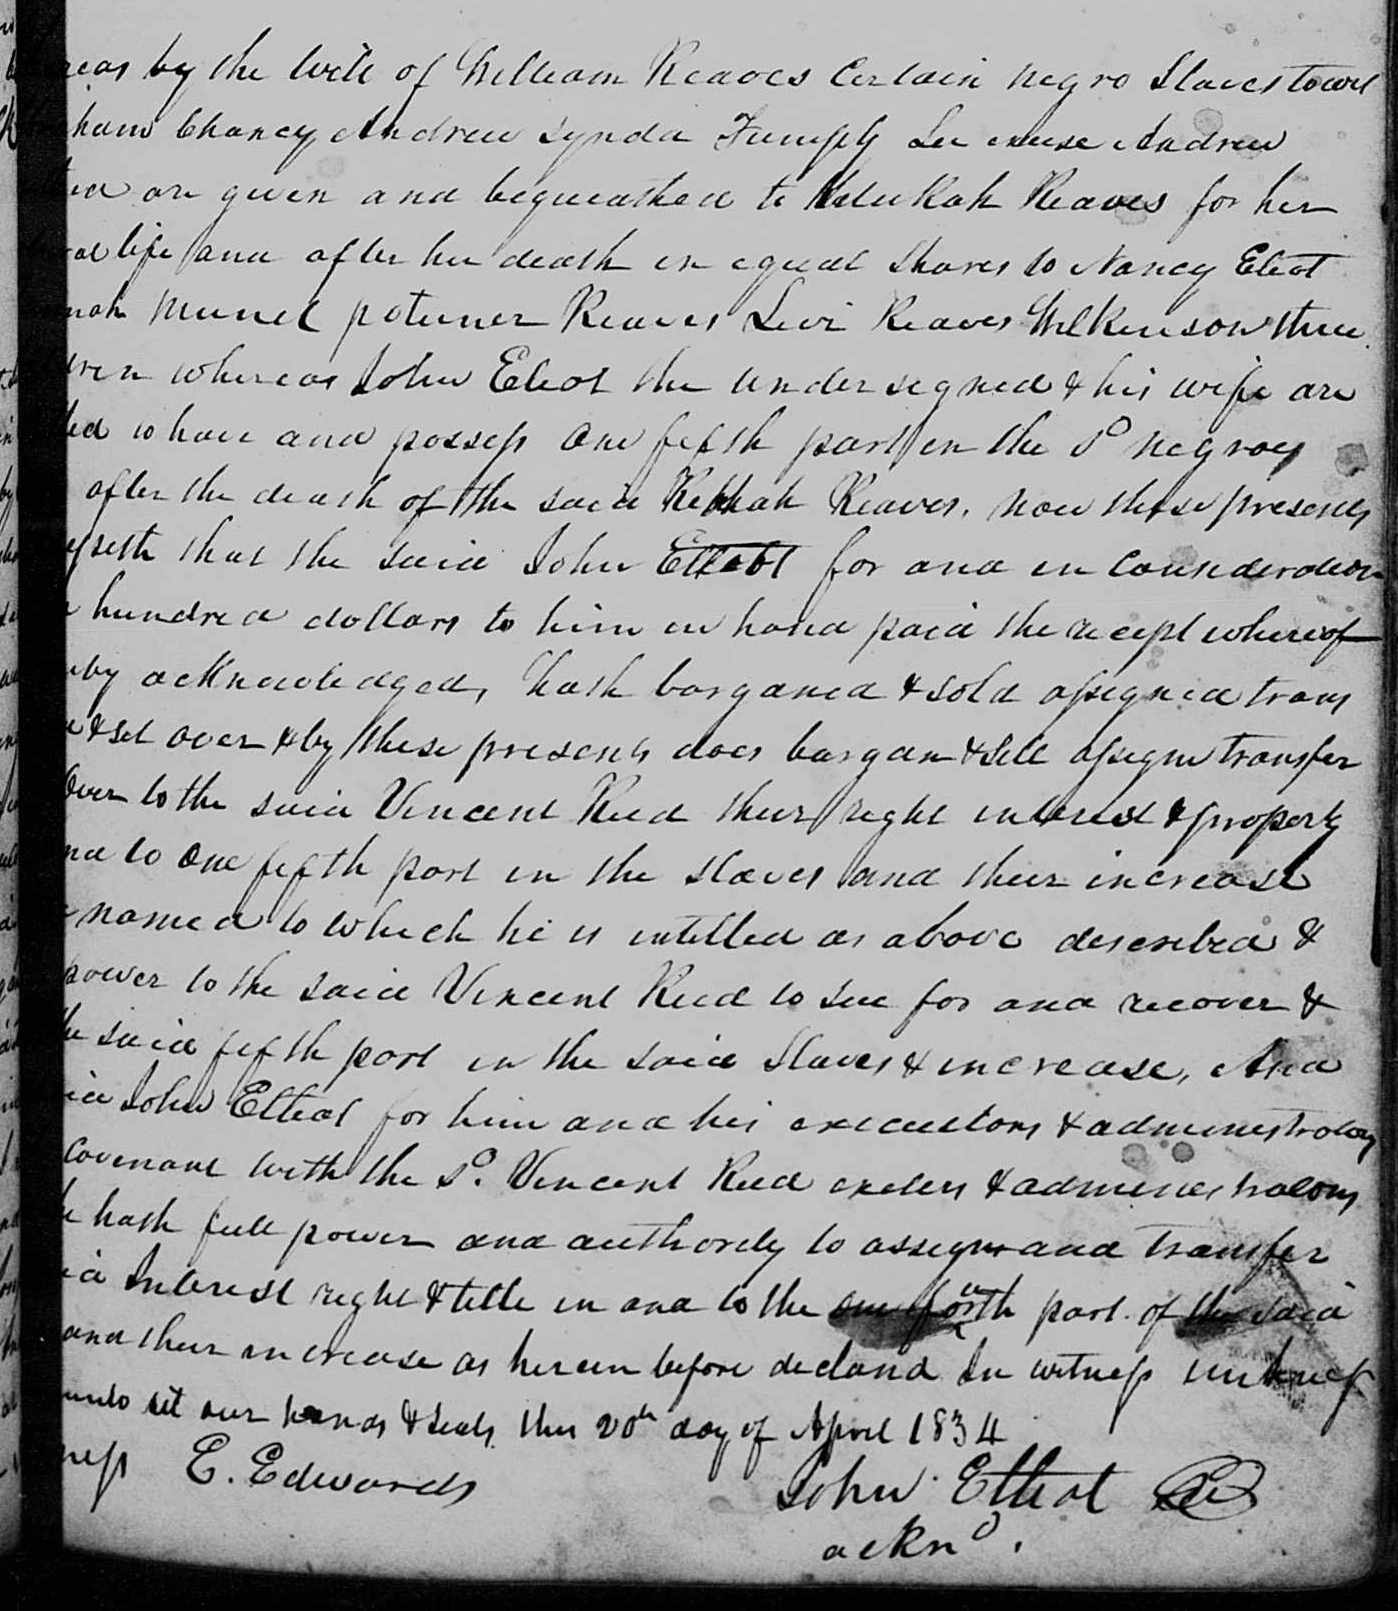 reas by the will of William Reaves Certain negro Slaves towit
ham Chaney Andrew Synda Andrew
are given and bequeathed to Reaves for her
ral life and after her death in equal Shares to Nancy Eliot
Reaves Levi Reaves Wilkinson three
dren whereas John Eliot the undersigned & his wife are
led to have and possess One fifth part in the Sd negroes
after the death of the said Reaves, now these presents
seth that the said John Elliott for and in Consideration
hundred dollars to him in hand paid the receipt whereof
eby acknowledged, hath bargained & sold assigned trans
& set over & by these presents does bargan & sell assign transfer
Over to the said Vincent Reed their right interest & property
nd to One fifth part in the slaves and their increase
named to which he is intitled as above described &
power to the said Vincent Reed to sue for and recover &
the said fifth part in the said Slaves & increase, And
id John Elliot for him and his executors & administrators
Covenant with the Sd. Vincent Reed & administrators
hath full power and authority to assign and transfer
id Interest right & title in and to the part of the said
and their increase as herein before declared In witness
unto set our hands & seals this 20th day of April 1834
ness E. Edwards
John Elliot
acknd.